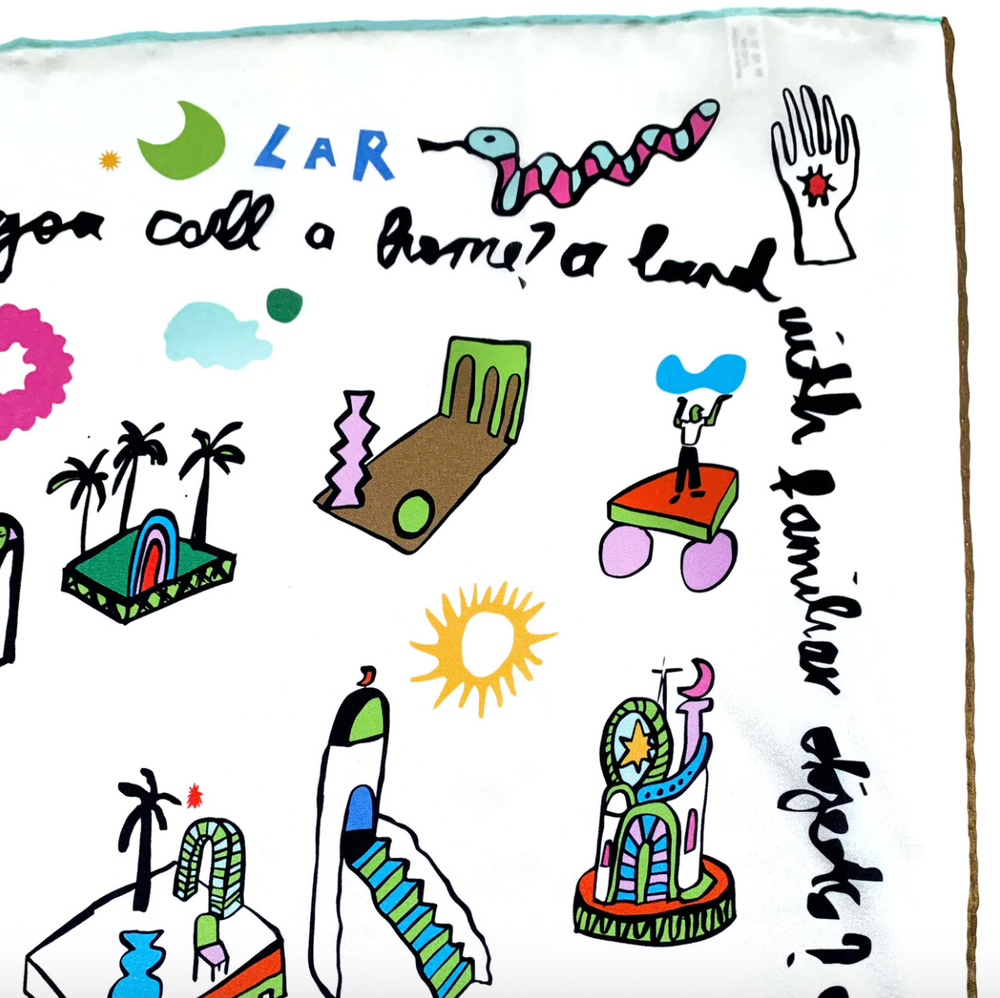 LAR
you call a home? a land
with familiar objects?